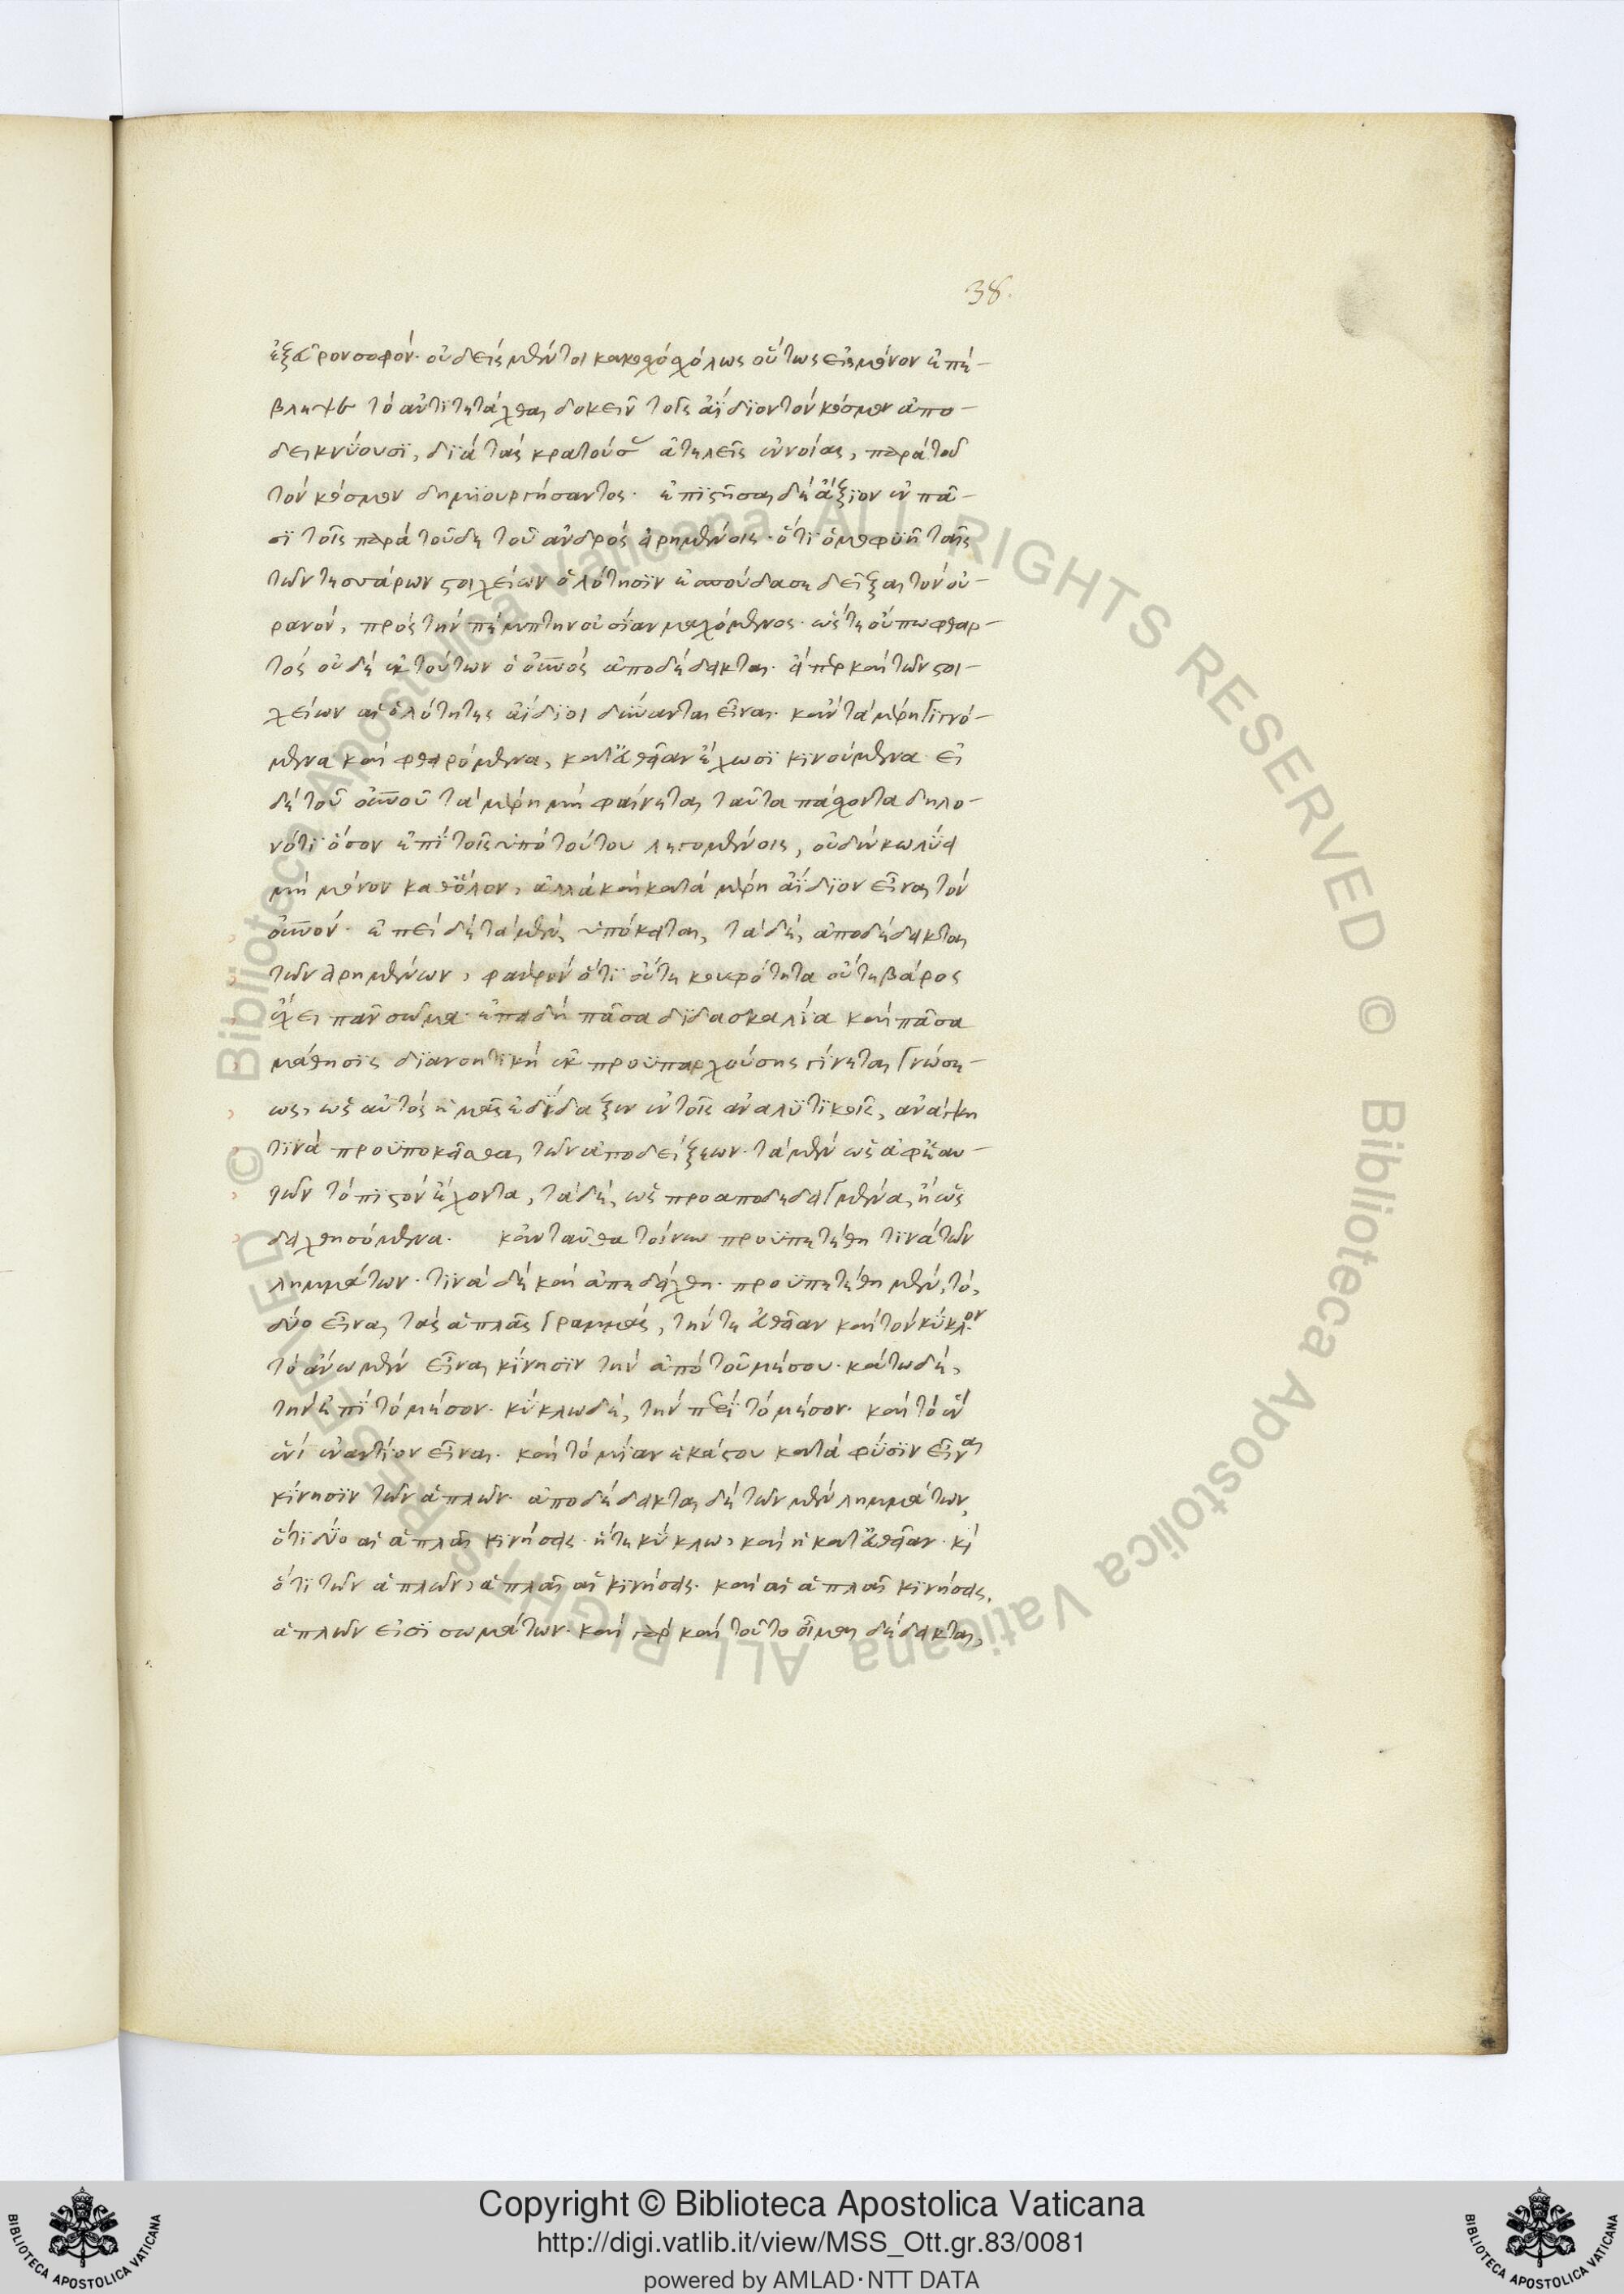 38.
ἐξεῦρον σοφόν· οὐδεὶς μέντοι κακοσχόλως οὕτως εἰς μόνον ἐπέ-
βλεψε τὸ ἀντιτετάχθαι δοκεῖν τοῖς ἀΐδιον τὸν κόσμον ἀπο-
δεικνύουσι, διὰ τὰς κρατούσας ἀτελεῖς ἐννοίας, περὶ τοῦ
τὸν κόσμον δημιουργήσαντος· ἐπιστῆσαι δὲ ἄξιον ἐν πᾶ-
σι τοῖς παρὰ τοῦδε τοῦ ἀνδρὸς εἰρημένοις· ὅτι ὁμοφυῆ ταῖς
τῶν τεσσάρων στοιχείων ὁλότησιν ἐσπούδασε δεῖξαι τὸν οὐ-
ρανόν, πρὸς τὴν πέμπτην οὐσίαν μαχόμενος· ὥστε οὔπω φθαρ-
τὸς οὐδὲ ἐκ τούτων ὁ οὐνὸς ἀποδέδεικται· εἴπερ καὶ τῶν στοι-
χείων αἱ ὁλότητες ἀΐδιοι δύνανται εἶναι· κἂν τὰ μέρη γινό-
μενα καὶ φθειρόμενα, κατ' εὐθεῖαν ἔχωσι κινούμενα· εἰ
δὲ τοῦ οὐνοῦ τὰ μέρη μὴ φαίνεται ταῦτα πάσχοντα δηλο-
νότι ὅσον ἐπὶ τοῖς ὑπὸ τούτου λεγομένοις, οὐδὲν κωλύει
μὴ μόνον καθ' ὅλον, ἀλλὰ καὶ κατὰ μέρη ἀΐδιον εἶναι τὸν
οὐνόν· ἐπεὶ δὲ τὰ μὲν, ὑπόκειται, τὰ δὲ, ἀποδέδεικται
τῶν εἰρημένων, φανερὸν ὅτι οὔτε κουφότητα οὔτε βάρος
ἔχει πᾶν σῶμα· ἐπειδὴ πᾶσα διδασκαλία καὶ πᾶσα
μάθησις διανοητικὴ ἐκ προϋπαρχούσης γίνεται γνώσε-
ως, ὡς αὐτὸς ἡμᾶς ἐδίδαξεν ἐν τοῖς ἀναλυτικοῖς, ἀνάγκη
τινὰ προϋποκεῖσθαι τῶν ἀποδείξεων· τὰ μὲν ὡς ἀφ' ἑαυ-
τῶν τὸ πιστὸν ἔχοντα, τὰ δὲ, ὡς προαποδεδειγμένα, ἢ ὡς
δειχθησόμενα· κἀνταῦθα τοίνυν προϋπετέθη τινὰ τῶν
λημμάτων· τινὰ δὲ καὶ ἀπεδείχθη· προϋπετέθη μὲν, τὸ,
δύο εἶναι τὰς ἁπλᾶς γραμμὰς, τήν τε εὐθεῖαν καὶ τὸν κύκλον
τὸ ἄνω μὲν εἶναι κίνησιν τὴν ἀπὸ τοῦ μέσου· κάτω δὲ,
τὴν ἐπὶ τὸ μέσον· κύκλω δὲ, τὴν περὶ τὸ μέσον· καὶ τὸ ἓν
ἑνὶ ἐναντίον εἶναι· καὶ τὸ μίαν ἑκάστου κατὰ φύσιν εἶναι
κίνησιν τῶν ἁπλῶν· ἀποδέδεικται δὲ τῶν μὲν λημμάτων,
ὅτι δύο αἱ ἁπλαῖ κινήσεις· ἥ τε κύκλω, καὶ ἡ κατ' εὐθεῖαν· κὶ
ὅτι τῶν ἁπλῶν, ἁπλαῖ αἱ κινήσεις· καὶ αἱ ἁπλαῖ κινήσεις,
ἁπλῶν εἰσὶ σωμάτων· καὶ γὰρ καὶ τοῦτο οἶμαι δέδεικται,
Copyright © Biblioteca Apostolica Vaticana
http://digi.vatlib.it/view/MSS_Ott.gr.83/0081
powered by AMLAD·NTT DATA